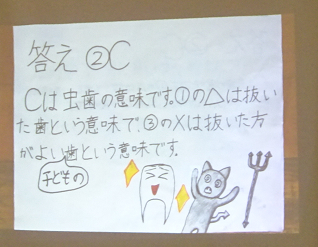 答え ②C
Cは虫歯の意味です。①の△は抜い
た歯という意味で、③のXは抜いた方
がよい歯という意味です。
子どもの